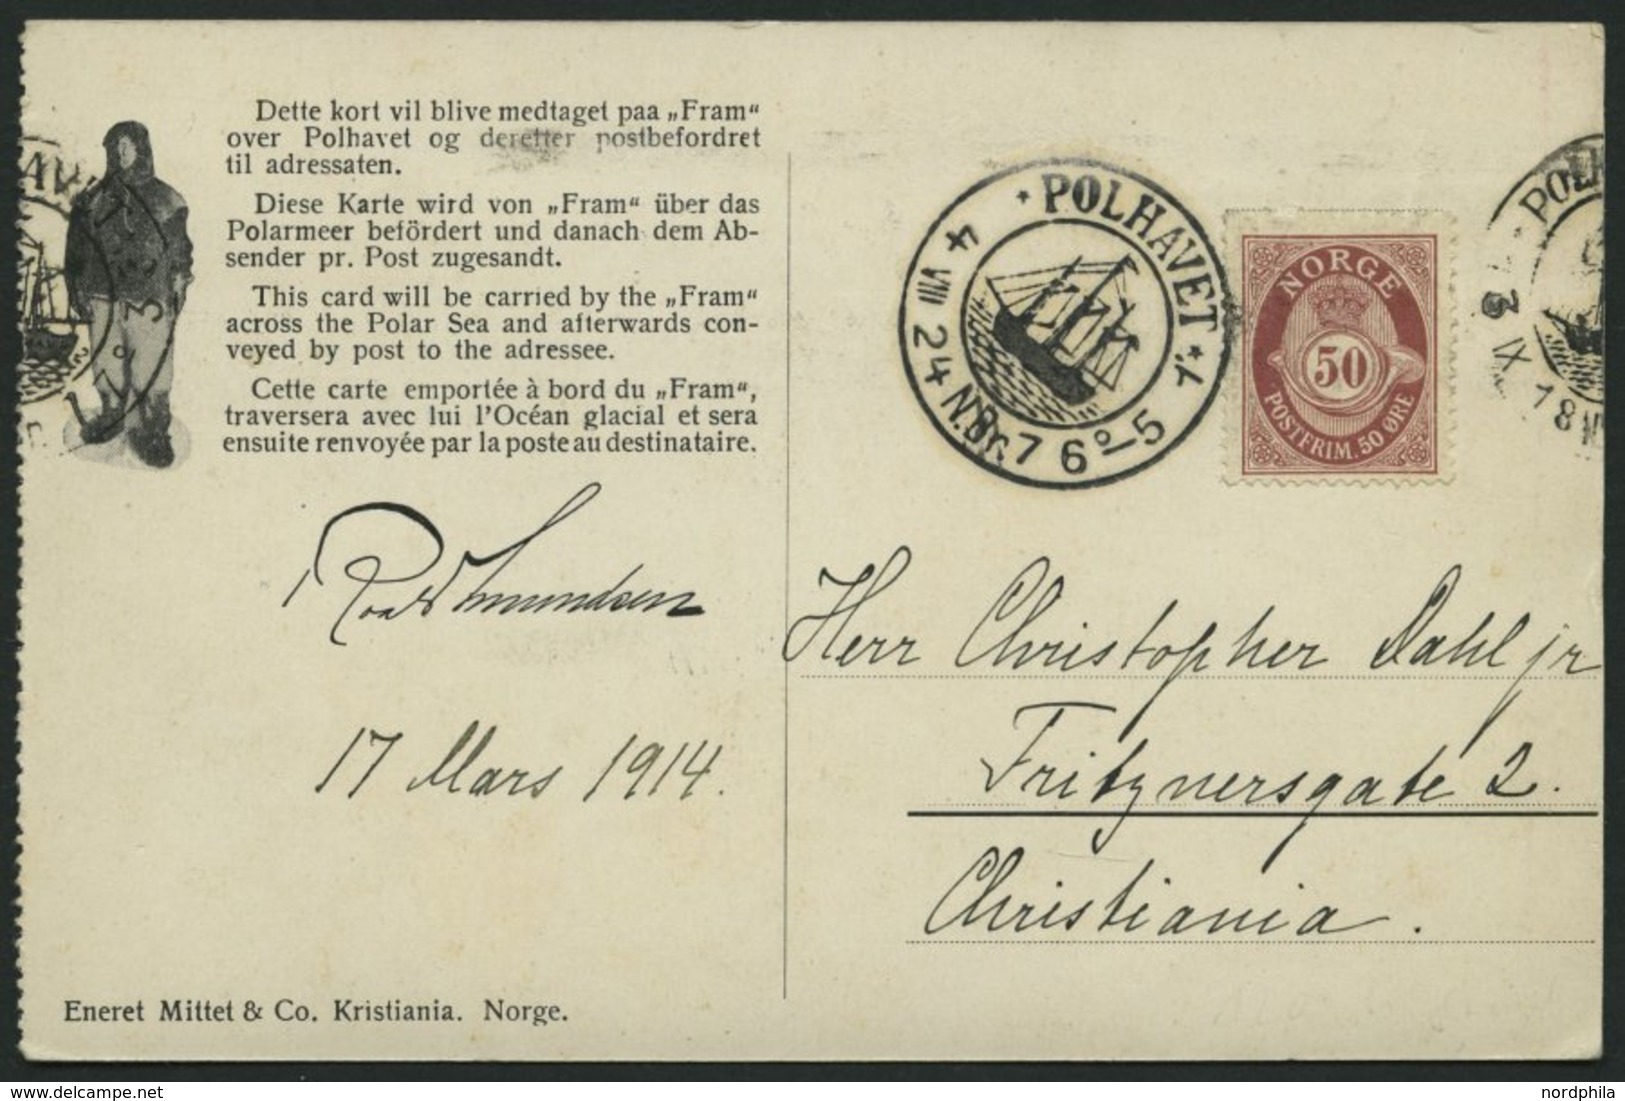 Dette kort vil blive medtaget paa „Fram“
over Polhavet og deretter postbefordret
til adressaten.
Diese Karte wird von „Fram“ über das
Polarmeer befördert und danach dem Ab-
sender pr. Post zugesandt.
This card will be carried by the „Fram“
across the Polar Sea and afterwards con-
veyed by post to the adressee.
Cette carte emportée à bord du „Fram“,
traversera avec lui l'Océan glacial et sera
ensuite renvoyée par la poste au destinataire.
Roald Amundsen
17 Mars 1914.
Eneret Mittet & Co. Kristiania. Norge.
POLHAVET
4 VIII 24 N.Br. 76°-5
NORGE
50
POSTFRIM. 50 ØRE
3 IX 18
Herr Christopher Dahl jr
Fritznersgate 2.
Christiania.
www.delcampe.net
nordphila